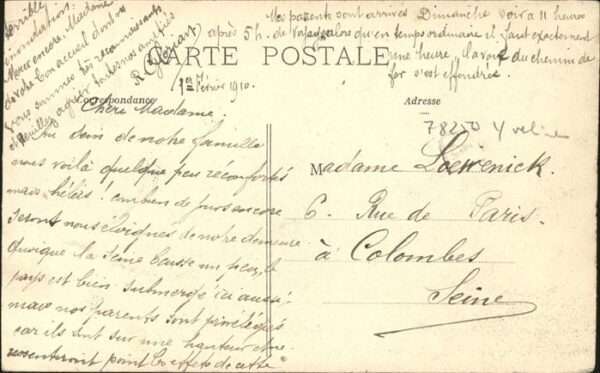 Mes parents sont arrivés Dimanche soir à 11 heures
après 5h. de voyage alors qu'en temps ordinaire il faut exactement
une heure, la voie du chemin de
fer s'est effondrée.
CARTE POSTALE
1er Février 1910.
Correspondance
Adresse
Chère Madame,
Au sein de notre famille
nous voilà quelque peu réconfortés
mais hélas! combien de jours encore
serons nous éloignés de notre demeure
Quoique la Seine baisse un peu, le
pays est bien submergé ici aussi:
mais nos parents sont privilégiés
car ils sont sur une hauteur et ne
ressentiront point les effets de cette
terrible
inondation.
Merci encore, Madame
de votre bon accueil dont
nous sommes très reconnaissants
et veuillez agréer toutes nos amitiés
78250 Yveline
Madame Loewenick.
6. Rue de Paris.
à Colombes
Seine